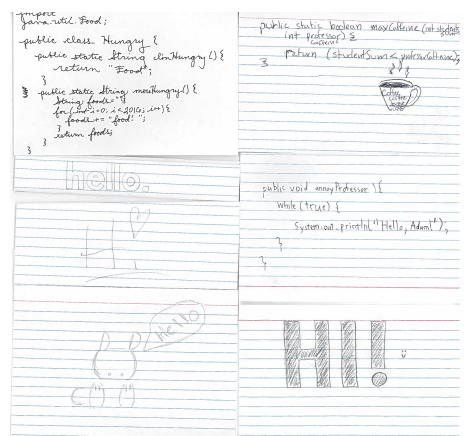 import
java.util.Food;
public class Hungry {
public static String imHungry() {
return "Food";
}
public static String moreHungry() {
String foods="";
for(int i=0; i<2016; i++){
foods+="food! ";
}
return foods;
}
}
hello.
Hi
Hello
public static boolean maxCaffeine(int students,
int professor) {
caffeine
return (studentSum < professorCaffeine);
}
Coffee
Coffee
public void annoyProfessor(){
while(true) {
System.out.println("Hello, Adam!");
}
}
HI!
:)